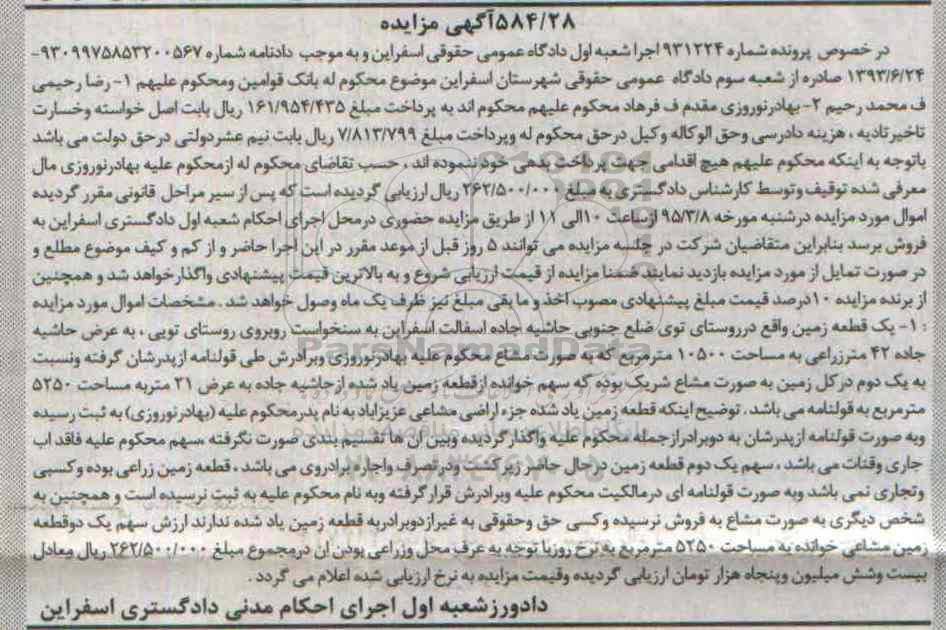 ۵۸۴/۲۸آگهی مزایده
در خصوص پرونده شماره ۹۳۱۲۲۴ اجرا شعبه اول دادگاه عمومی حقوقی اسفراین و به موجب دادنامه شماره ۹۳۰۹۹۷۵۸۵۳۲۰۰۵۶۷-
۱۳۹۳/۶/۲۴ صادره از شعبه سوم دادگاه عمومی حقوقی شهرستان اسفراین موضوع محکوم له بانک قوامین ومحکوم علیهم ۱- رضا رحیمی
ف محمد رحیم ۲- بهادرنوروزی مقدم ف فرهاد محکوم علیهم محکوم اند به پرداخت مبلغ ۱۶۱/۹۵۴/۴۳۵ ریال بابت اصل خواسته وخسارت
تاخیرتادیه ، هزینه دادرسی وحق الوکاله وکیل درحق محکوم له وپرداخت مبلغ ۷/۸۱۳/۷۹۹ ریال بابت نیم عشردولتی درحق دولت می باشد
باتوجه به اینکه محکوم علیهم هیچ اقدامی جهت پرداخت بدهی خود ننموده اند ، حسب تقاضای محکوم له ازمحکوم علیه بهادرنوروزی مال
معرفی شده توقیف وتوسط کارشناس دادگستری به مبلغ ۲۶۲/۵۰۰/۰۰۰ ریال ارزیابی گردیده است که پس از سیر مراحل قانونی مقرر گردیده
اموال مورد مزایده درشنبه مورخه ۹۵/۳/۸ ازساعت ۱۰الی ۱۱ از طریق مزایده حضوری درمحل اجرای احکام شعبه اول دادگستری اسفراین به
فروش برسد بنابراین متقاضیان شرکت در جلسه مزایده می توانند ۵ روز قبل از موعد مقرر در این اجرا حاضر و از کم و کیف موضوع مطلع و
در صورت تمایل از مورد مزایده بازدید نمایند ضمنا مزایده از قیمت ارزیابی شروع و به بالاترین قیمت پیشنهادی واگذار خواهد شد و همچنین
از برنده مزایده ۱۰درصد قیمت مبلغ پیشنهادی مصوب اخذ و ما بقی مبلغ نیز ظرف یک ماه وصول خواهد شد . مشخصات اموال مورد مزایده
: ۱- یک قطعه زمین واقع درروستای توی ضلع جنوبی حاشیه جاده اسفالت اسفراین به سنخواست روبروی روستای تویی ، به عرض حاشیه
جاده ۴۲ مترزراعی به مساحت ۱۰۵۰۰ مترمربع که به صورت مشاع محکوم علیه بهادرنوروزی وبرادرش طی قولنامه ازپدرشان گرفته ونسبت
به یک دوم درکل زمین به صورت مشاع شریک بوده که سهم خوانده ازقطعه زمین یاد شده ازحاشیه جاده به عرض ۲۱ متربه مساحت ۵۲۵۰
مترمربع به قولنامه می باشد . توضیح اینکه قطعه زمین یاد شده جزء اراضی مشاعی عزیزاباد به نام پدرمحکوم علیه (بهادرنوروزی) به ثبت رسیده
وبه صورت قولنامه ازپدرشان به دوبرادرازجمله محکوم علیه واگذارگردیده وبین آن ها تقسیم بندی صورت نگرفته ،سهم محکوم علیه فاقد اب
جاری وقنات می باشد ، سهم یک دوم قطعه زمین درحال حاضر زیرکشت ودرتصرف واجاره برادروی می باشد ، قطعه زمین زراعی بوده وکسبی
وتجاری نمی باشد وبه صورت قولنامه ای درمالکیت محکوم علیه وبرادرش قرارگرفته وبه نام محکوم علیه به ثبت نرسیده است و همچنین به
شخص دیگری به صورت مشاع به فروش نرسیده وکسی حق وحقوقی به غیرازدوبرادربه قطعه زمین یاد شده ندارند ارزش سهم یک دوقطعه
زمین مشاعی خوانده به مساحت ۵۲۵۰ مترمربع به نرخ روزبا توجه به عرف محل وزراعی بودن ان درمجموع مبلغ ۲۶۲/۵۰۰/۰۰۰ ریال معادل
بیست وشش میلیون وپنجاه هزار تومان ارزیابی گردیده وقیمت مزایده به نرخ ارزیابی شده اعلام می گردد .
دادورزشعبه اول اجرای احکام مدنی دادگستری اسفراین
ParsNamadData